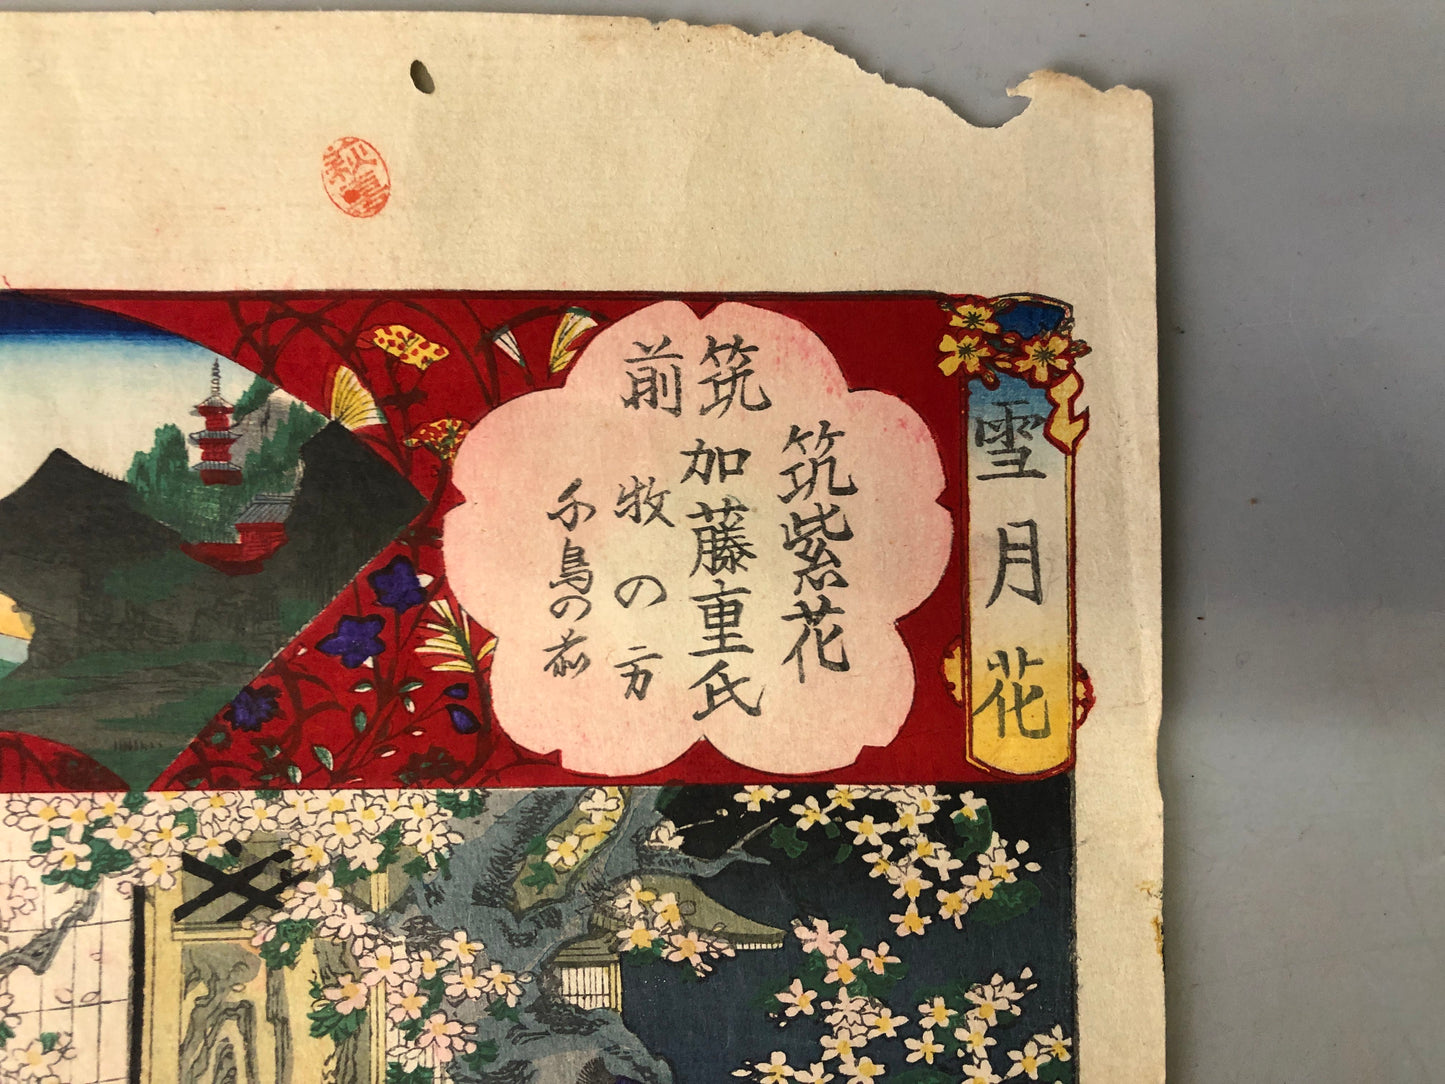 雪月花
筑紫花
筑前
加藤重氏
牧の方
千鳥の前